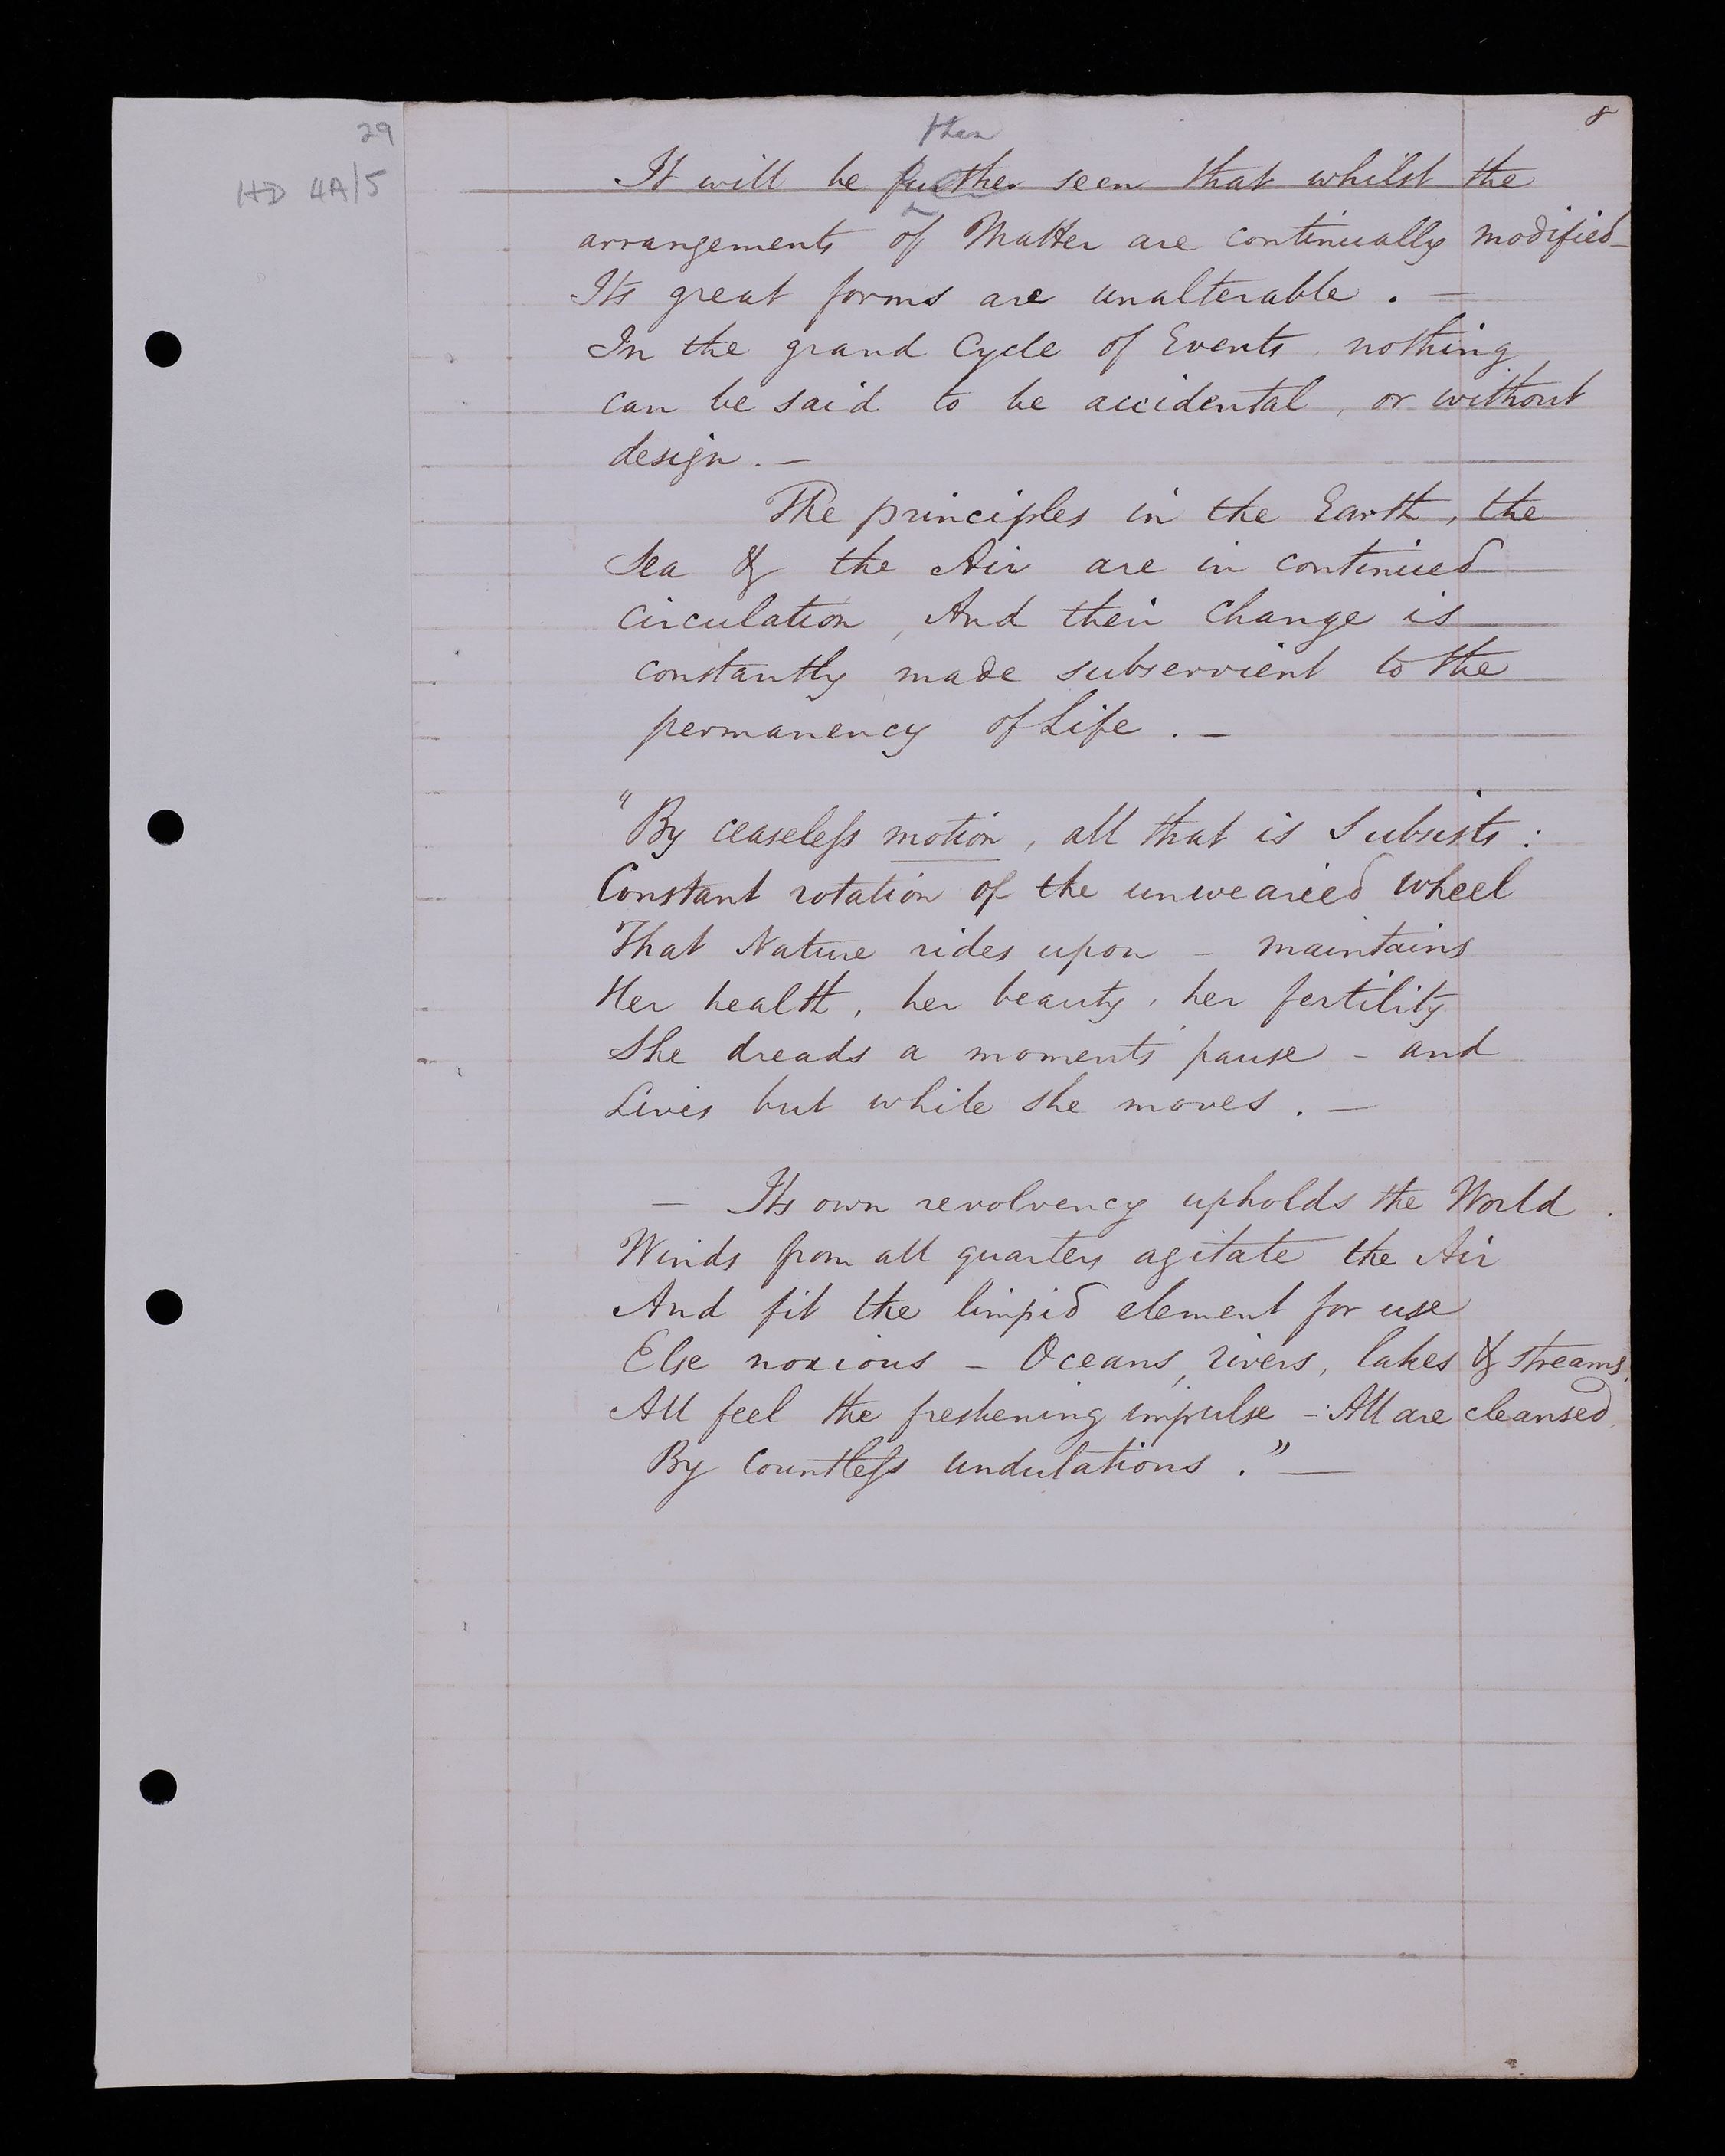 29
HD 4A/5
8
then
It will be further seen that whilst the
arrangements of Matter are continually modified
Its great forms are unalterable . —
In the grand Cycle of Events, nothing
can be said to be accidental, or without
design. —
The principles in the Earth, the
Sea & the Air are in continued
circulation, And their change is
constantly made subservient to the
permanency of Life . —
"By ceaseless motion, all that is Subsists :
Constant rotation of the unwearied wheel
That Nature rides upon – maintains
Her health, her beauty, her fertility
She dreads a moments' pause – and
Lives but while she moves . —
— Its own revolvency upholds the World .
Winds from all quarters agitate the Air
And fit the limpid element for use
Else noxious – Oceans, rivers, lakes & streams,
All feel the freshening impulse – All are cleansed
By Countless undulations ." —